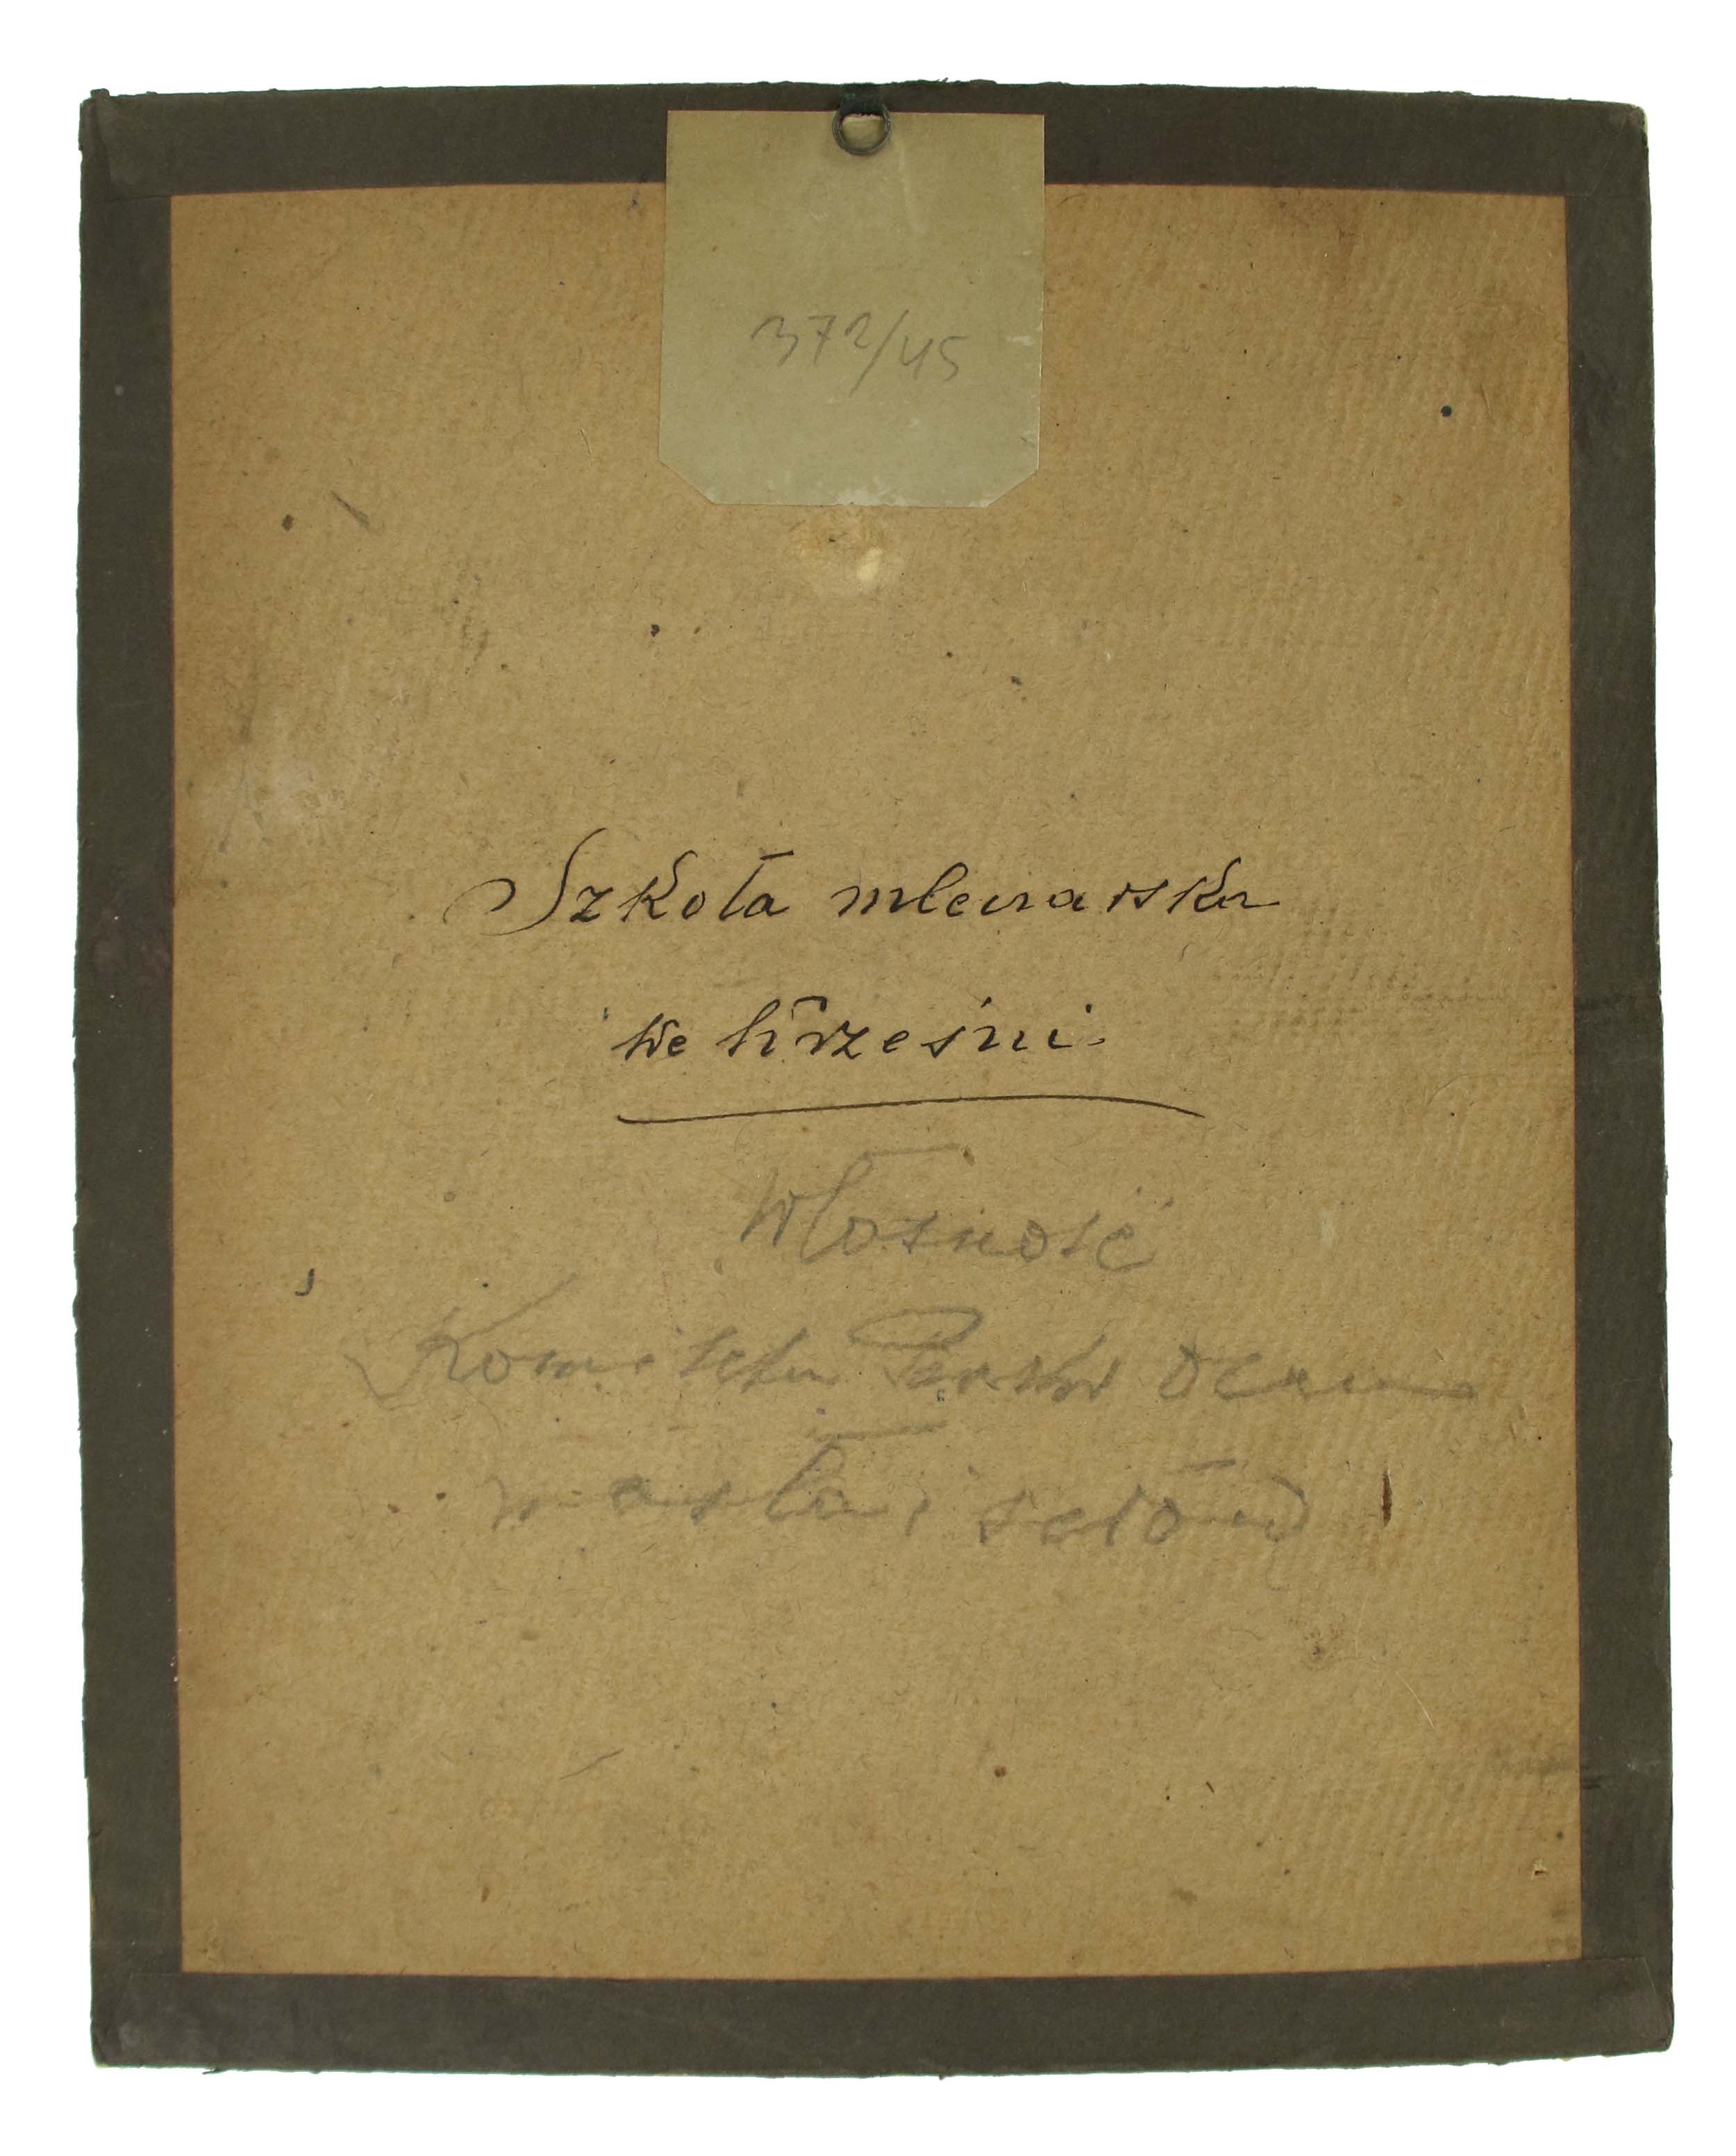 372/45
Szkoła mleczarska
we Wrześni.
Własność
Komitetu Państw Ocen
masła i serów